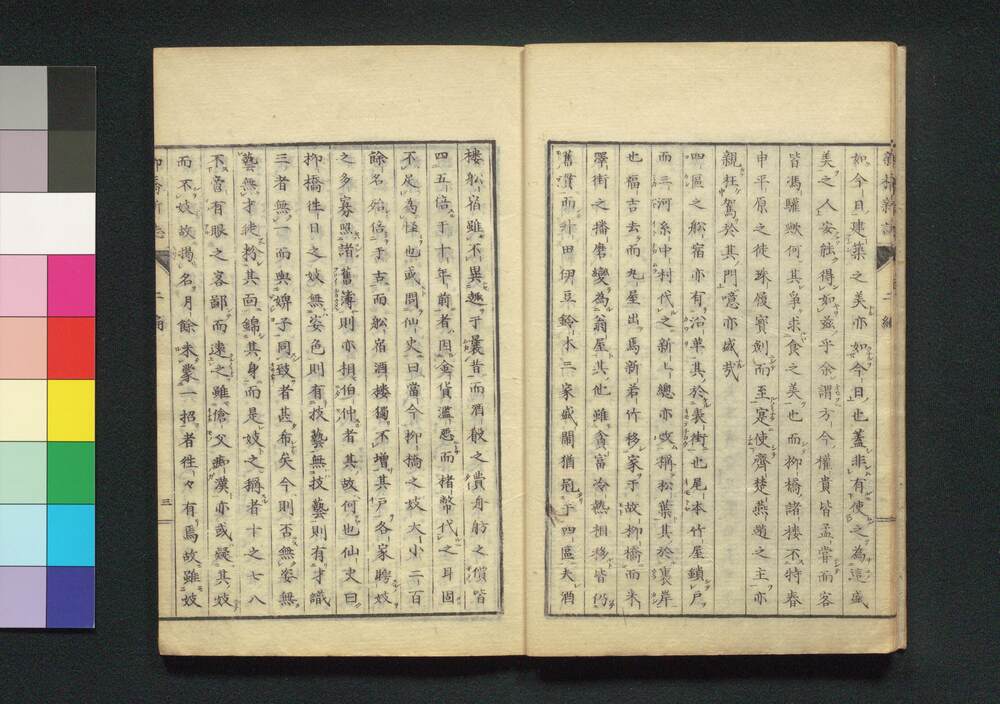 如今日建築之美亦如今日也蓋非有使之為這盛
美之人安能得如茲乎余謂方今權貴皆孟嘗而客
皆馮驩歟何其爭求食之美也而柳橋諸樓不特春
申平原之徒珠履寶劍而至寔使齊楚燕趙之主亦
親枉駕於其門噫亦盛哉
四區之舩宿亦有沿革其於表街也尾本竹屋鎖戶
而三河糸中村代之新上總亦改稱松葉其於裏岸
也福吉去而丸屋出焉新若竹移家于故柳橋而米
澤街之播磨變為翁屋其他雖貪富冷熱相移皆仍
舊慣而升田伊豆鈴木三家盛關猶冠于四區夫酒
樓舩宿雖不異趣于曩昔而酒殽之價舟舫之償皆
四五倍于十年前者因金貨濫惡而楮幣代之耳固
不足為怪也或問仙史曰當今柳橋之妓大小二百
餘名殆倍于古而舩宿酒樓獨不增其戶各家聘妓
之多寡照諸舊簿則亦相伯仲者其故何也仙史曰
柳橋往日之妓無姿色則有技藝無技藝則有才識
三者無一而與婢子同致者甚希矣今則否無姿無
藝無才徒粉其面錦其身而是妓之稱者十之七八
不啻有眼之客鄙而遠之雖傖父癡漢亦或疑其妓
而不妓故揭名月餘未蒙一招者往々有焉故雖妓
柳橋新誌
二編
三